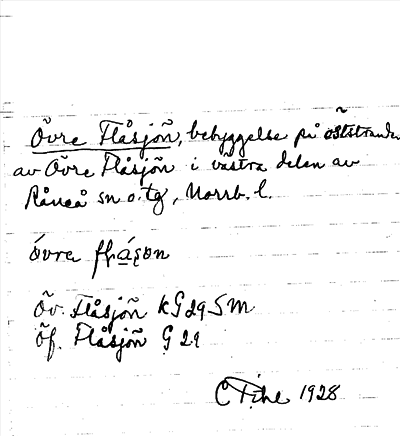 Övre Flåsjön, bebyggelse på öststranden
av Övre Flåsjön i västra delen av
Råneå sn o. tg, Norrb. l.
Öv. Flåsjön KG29SM
Öf. Flåsjön G 29
1928